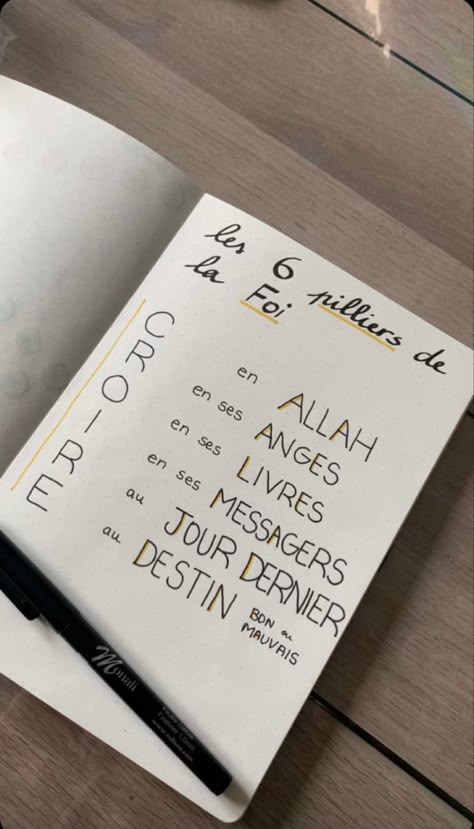 les 6 pilliers de
la Foi
CROIRE
en ALLAH
en ses ANGES
en ses LIVRES
en ses MESSAGERS
au JOUR DERNIER
au DESTIN BON ou
MAUVAIS